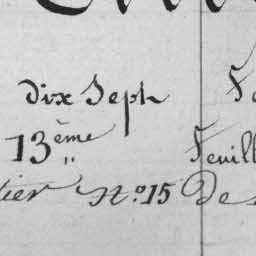 dix Sept
13ème Feuill
tier No. 15 De